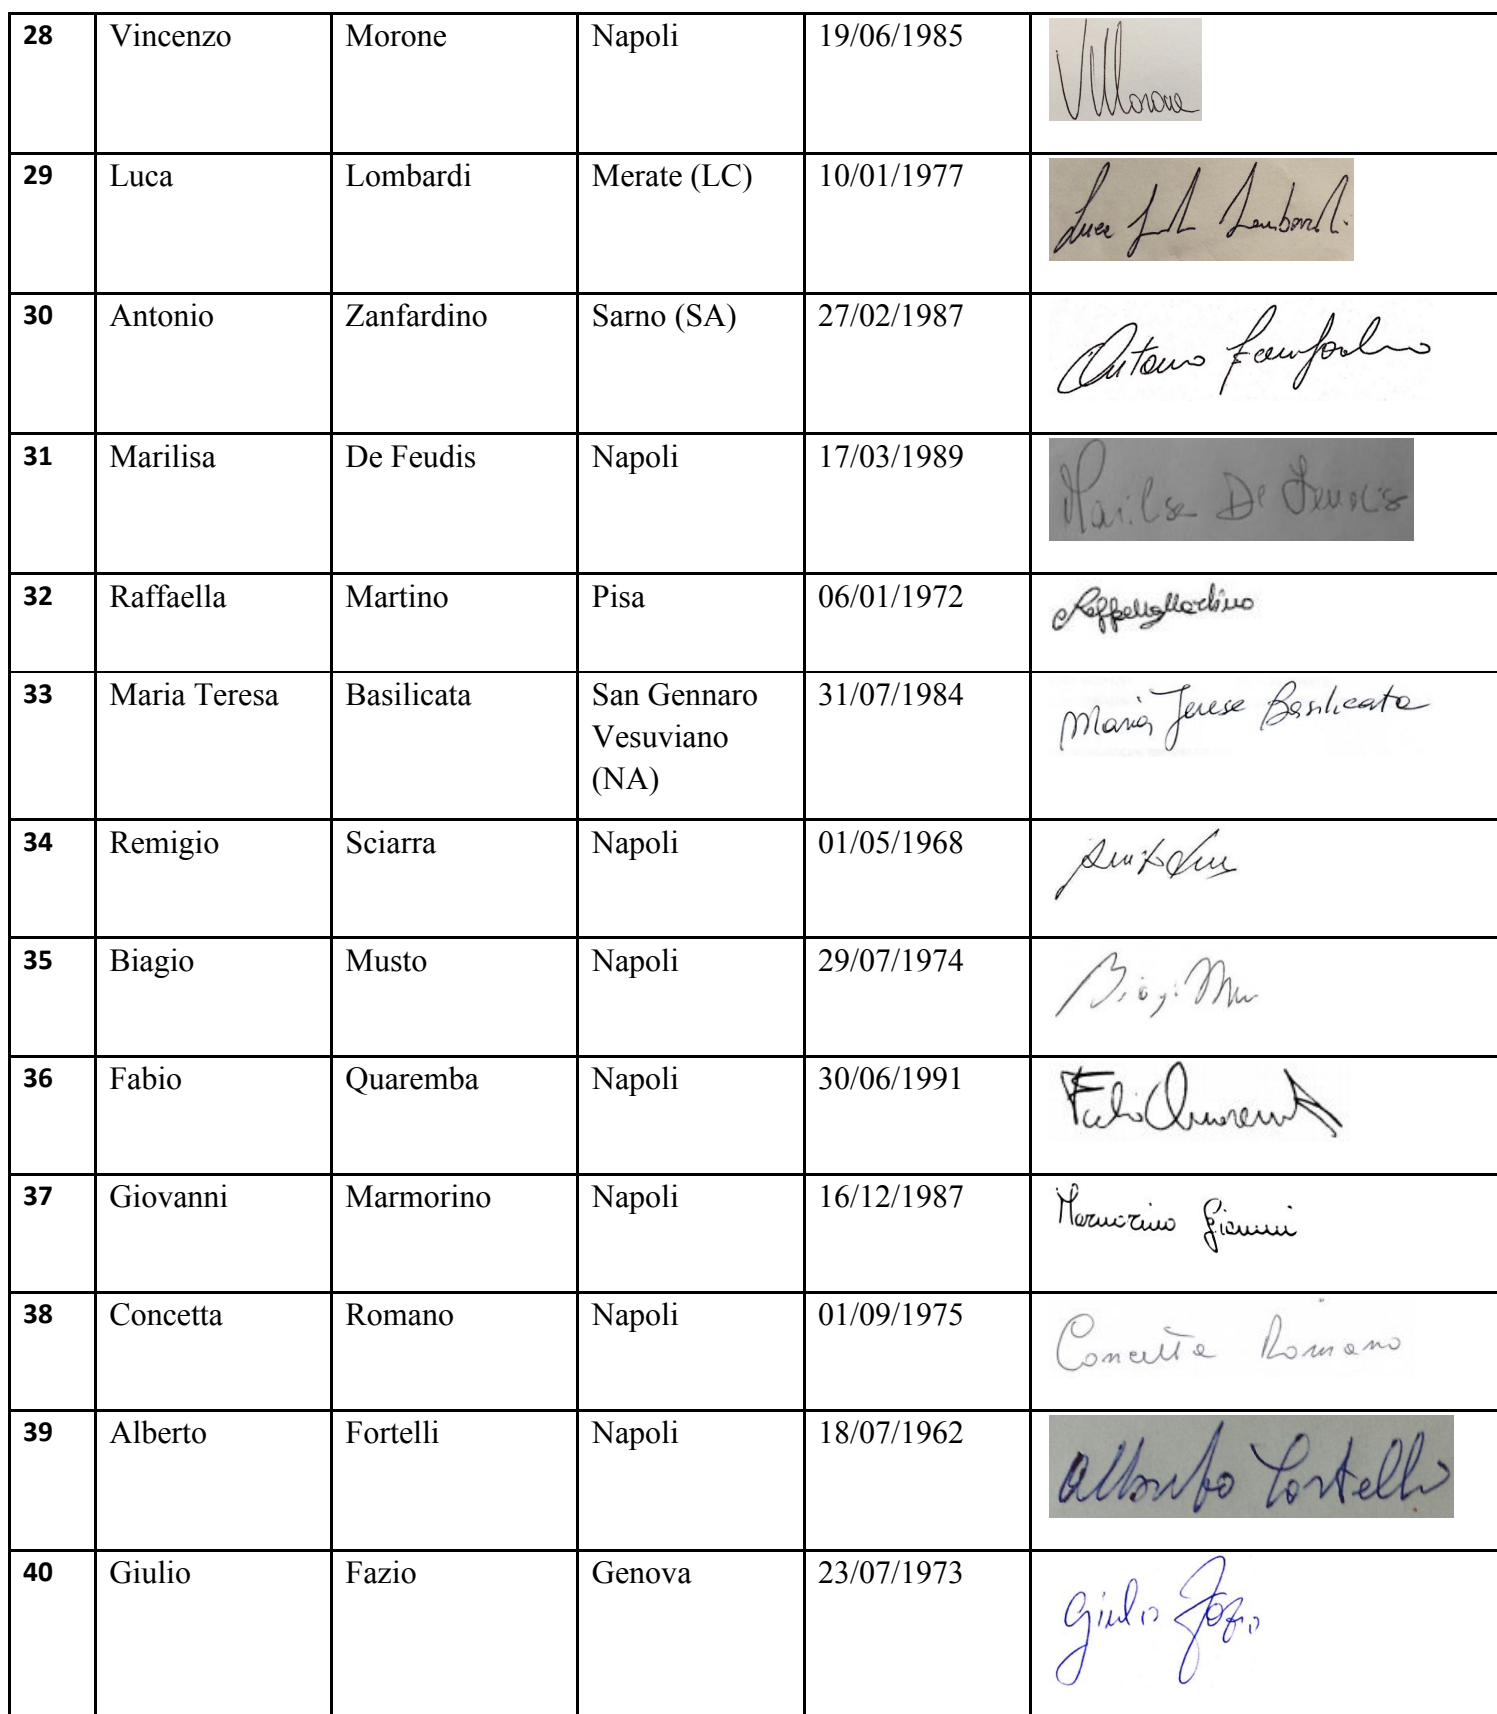 28 Vincenzo Morone Napoli 19/06/1985 VMorone
29 Luca Lombardi Merate (LC) 10/01/1977 Luca Lombardi
30 Antonio Zanfardino Sarno (SA) 27/02/1987 Antonio Zanfardino
31 Marilisa De Feudis Napoli 17/03/1989 Marilisa De Feudis
32 Raffaella Martino Pisa 06/01/1972 Raffaella Martino
33 Maria Teresa Basilicata San Gennaro 31/07/1984 Maria Terese Basilicata
Vesuviano
(NA)
34 Remigio Sciarra Napoli 01/05/1968
35 Biagio Musto Napoli 29/07/1974
36 Fabio Quaremba Napoli 30/06/1991 Fabio Quaremba
37 Giovanni Marmorino Napoli 16/12/1987 Marmorino Gianni
38 Concetta Romano Napoli 01/09/1975 Concetta Romano
39 Alberto Fortelli Napoli 18/07/1962 Alberto Fortelli
40 Giulio Fazio Genova 23/07/1973 Giulio Fazio